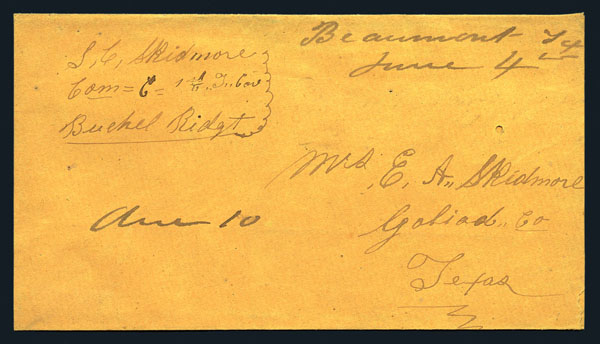 S. C. Skidmore
Com = C = 1st Tx Cav
Buchel Ridgt
Beaumont Tx
June 4
Mrs. E. A. Skidmore
Goliad Co
Texas
Due 10